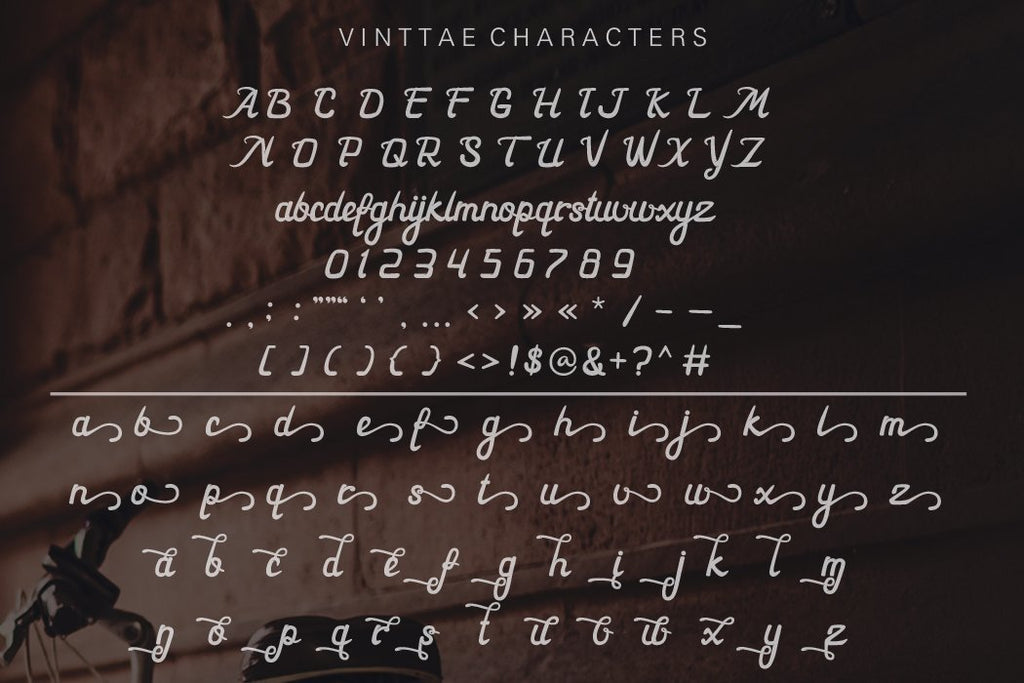 VINTTAE CHARACTERS
A B C D E F G H I J K L M
N O P Q R S T U V W X Y Z
abcdefghijklmnopqrstuvwxyz
0 1 2 3 4 5 6 7 8 9
. , ; : " ” “ ‘ ’ , … < > » « * / - – _
[ ] ( ) { } < > ! $ @ & + ? ^ #
a b c d e f g h i j k l m
n o p q r s t u v w x y z
a b c d e f g h i j k l m
n o p q r s t u v w x y z